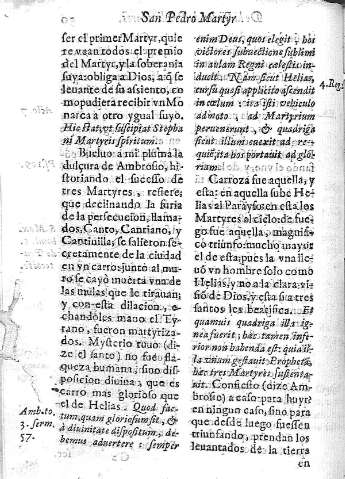 San Pedro Martyr
ser el primer Martyr, quie
re vean todos el premio
del Martyr, y la soberania
suya: obliga a Dios, a q̃ se
leuante de su assiento, co
mo pudiera recibir vn Mo
narca a otro ygual suyo.
Hic stat, vt suscipiat Stepha
ni Martyris spiritum.
Bueluo a mi pluma la
dulçura de Ambrosio, hi-
storiando el sucesso de
tres Martyres, refiere,
que declinando la furia
de la persecucion, llama-
dos, Canto, Cantiano, y
Cantinilla, se salieron se-
cretamente de la ciudad
en vn carro: junto al mu-
ro se cayò muerta vna de
las mulas que le tirauan;
y con esta dilacion, e-
chandoles mano el Ty-
rano, fueron martyriza-
dos. Mysterio tuuo (di-
ze el santo) no fue fla-
queza humana, sino dis-
posicion diuina, que es
carro mas glorioso que
el de Helias. Quod fac-
tum, quam gloriosum sit, &
à diuinitate dispositum, de-
bemus aduertere: semper
Ambro.
3. serm.
57.
enim Deus, quos elegit, hos
victores subuectione sublimi
in aulam Regni cœlestis in-
ducit. Nam sicut Helias,
cursu quasi applicito ascendit
in cœlum: ita isti vehiculo
admoto, ad Martyrium
peruenerunt, & quadriga
sicut illum euexit ad re-
quiẽ, ita hos portauit ad glo-
riam.
4. Reg.
Carroza fue aquella, y
esta: en aquella sube He-
lias al Parayso: en esta los
Martyres al cielo: de fue-
go fue aquella, magnifi-
co triunfo: mucho mayor
el de esta; pues la vna lle-
uò vn hombre solo como
Helias, y no a la clara vi-
siõ de Dios, y esta a tres
santos les beatifica. Et
quamuis quadriga illa ig-
nea fuerit, hæc tamen infe-
rior non habenda est: quia il-
la vnum gestauit Prophetã,
hæc tres Martyres sustenta-
uit. Confiesso (dize Am-
brosio) a caso para huyr
en ningun caso, sino para
que desde luego fuessen
triunfando, prendan los
leuantados de la tierra
en